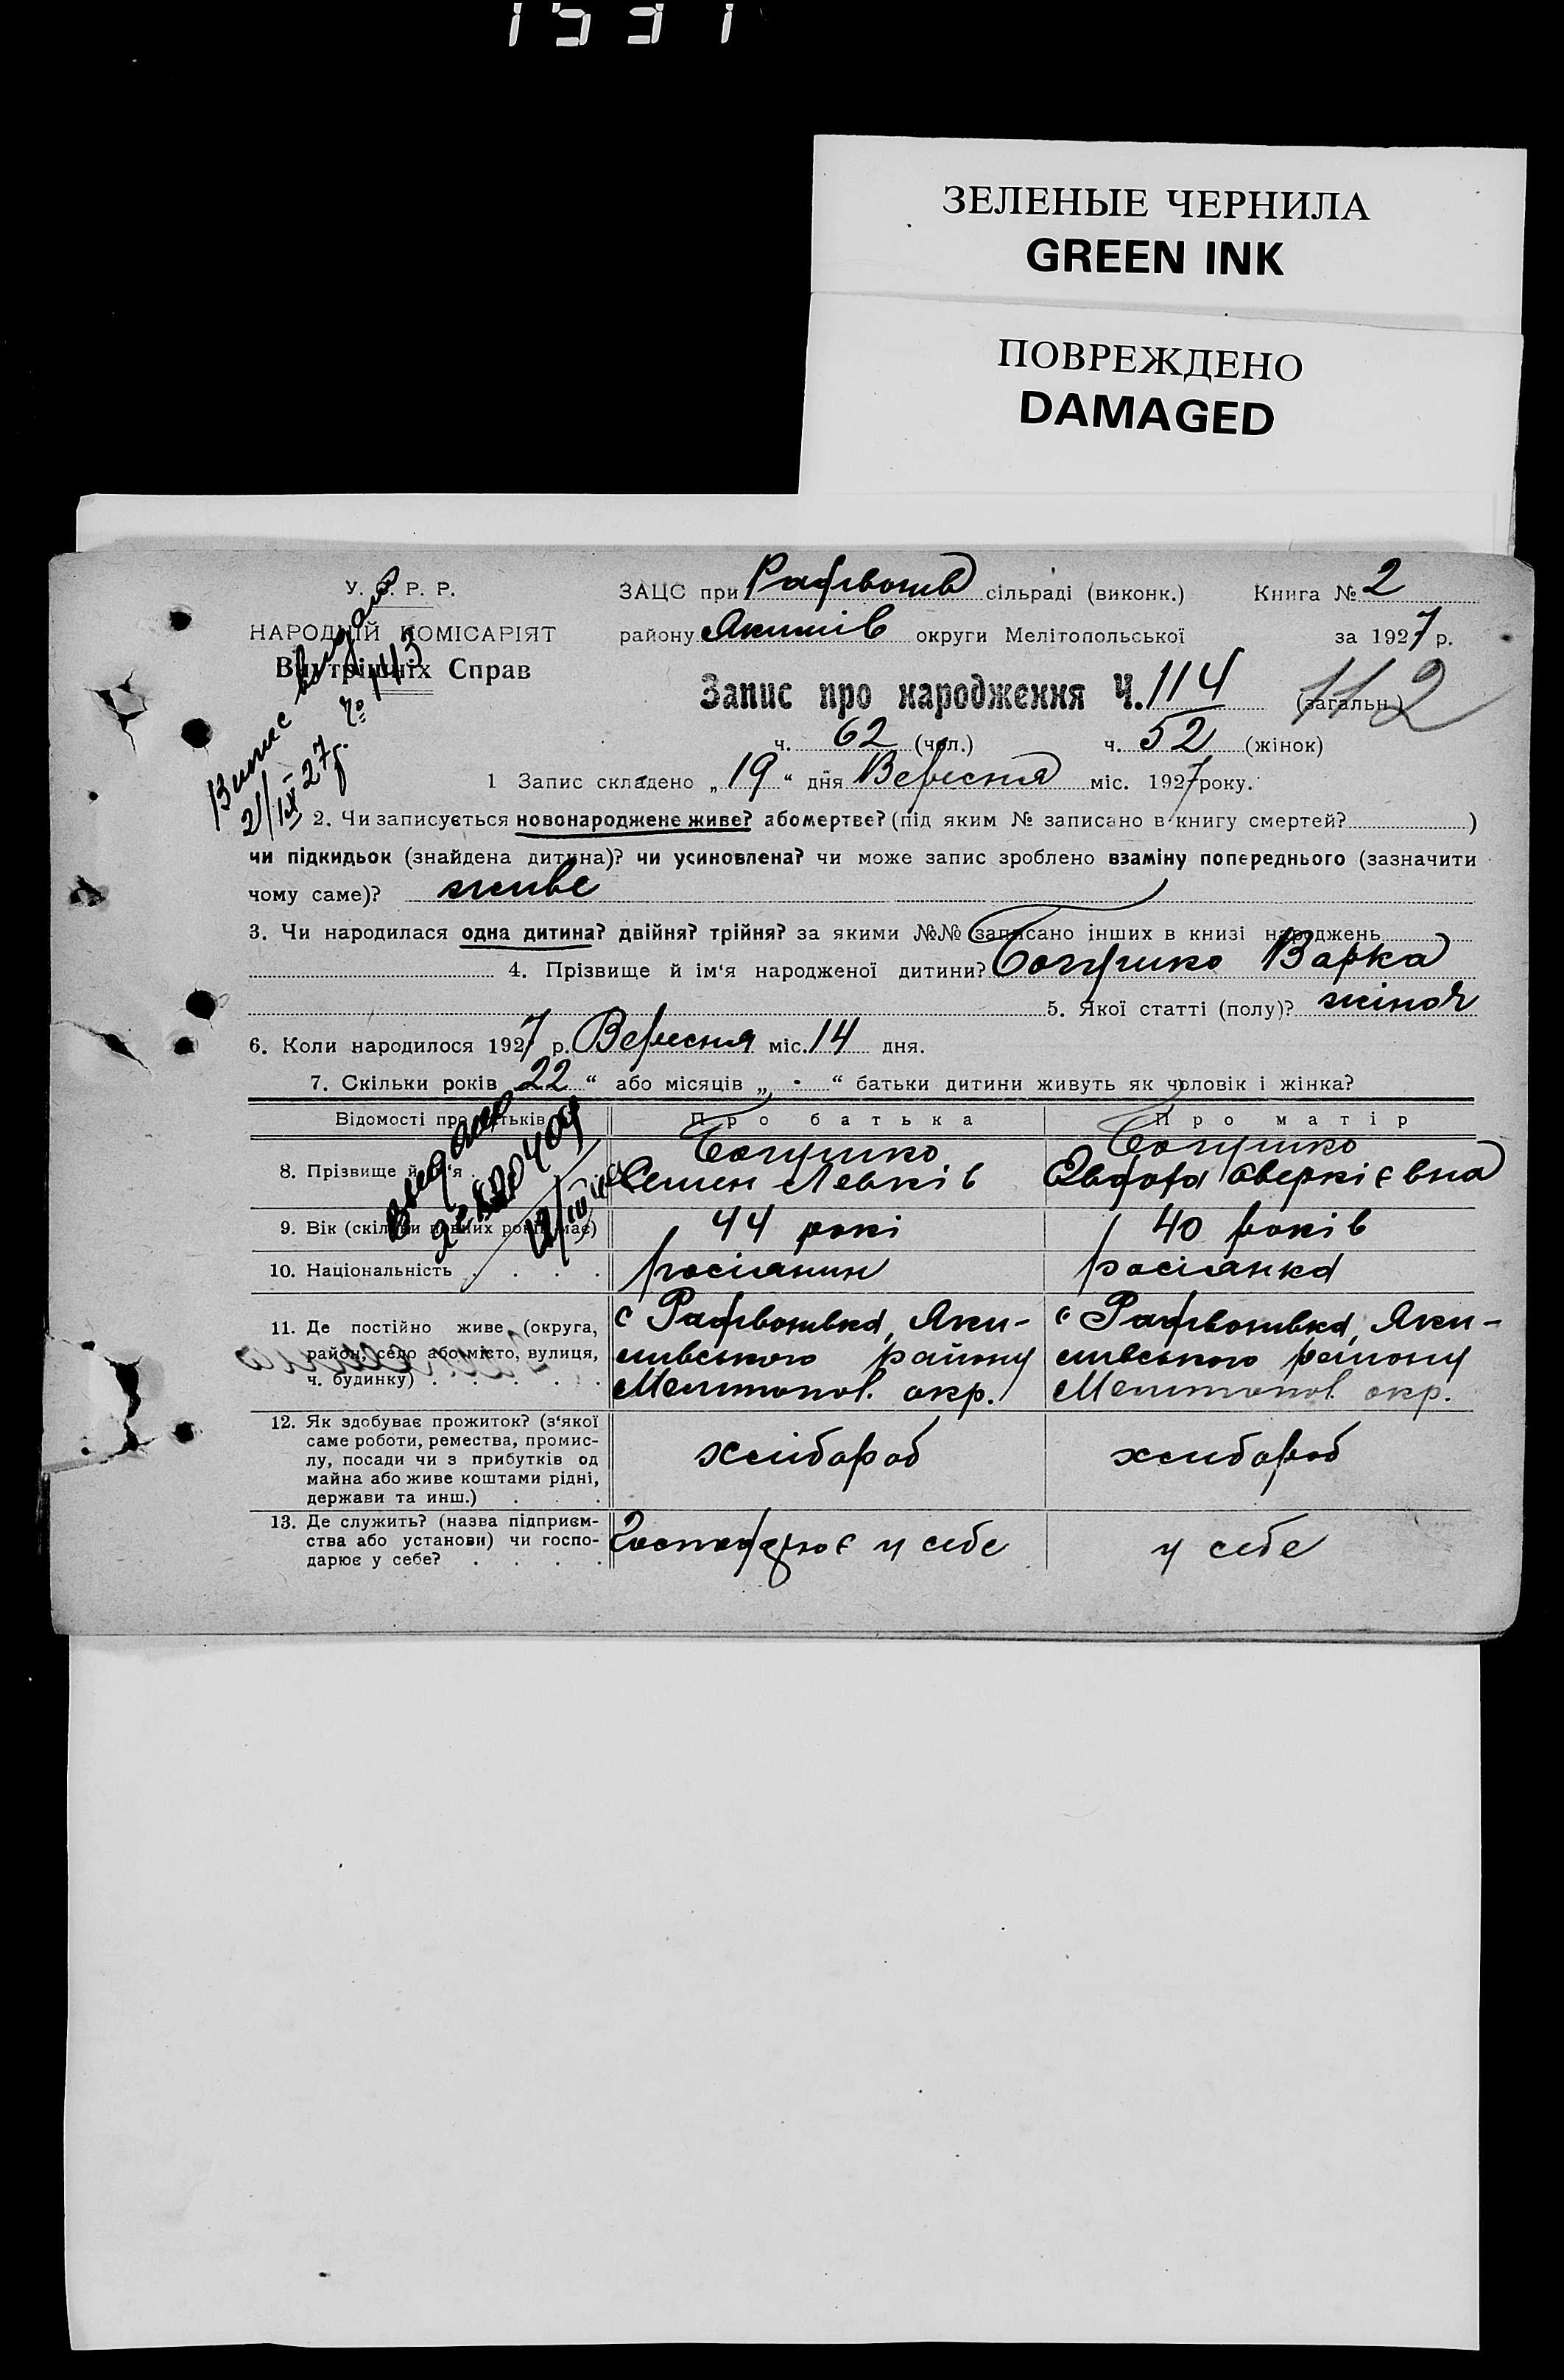 1531
ЗЕЛЕНЫЕ ЧЕРНИЛА
GREEN INK
ПОВРЕЖДЕНО
DAMAGED
У. С. Р. Р.
НАРОДНІЙ КОМІСАРІЯТ
Внутрішніх Справ
ЗАЦС при сільраді (виконк.) Книга № 2
району Якимів округи Мелітопольської за 1927 р.
Запис про народження Ч. 114 (загальн.) 112
ч. 62 (чол.) ч. 52 (жінок)
Випис видан
21/IX-27 р. № 143
1 Запис складено „19“ дня Вересня міс. 1927 року.
2. Чи записується новонароджене живе? або мертве? (під яким № записано в книгу смертей? )
чи підкидьок (знайдена дитина)? чи усиновлена? чи може запис зроблено взаміну попереднього (зазначити
чому саме)? живе
3. Чи народилася одна дитина? двійня? трійня? за якими №№ записано інших в книзі народжень
4. Прізвище й ім‘я народженої дитини? Богушко Варка
5. Якої статті (полу)? жіноч
6. Коли народилося 1927 р. Вересня міс. 14 дня.
7. Скільки років 22 “ або місяців „ - “ батьки дитини живуть як чоловік і жінка?
Відомості про батьків Про батька Про матір
8. Прізвище й ім‘я Богушко Семен Левків Богушко Аверкієвна
9. Вік (скільки повних років має) 44 рокі 40 років
10. Національність росіянин росіянка
11. Де постійно живе (округа,
район, село або місто, вулиця,
ч. будинку)
с Якимівського району Мелитопол. окр.
с Якимівського району Мелитопол. окр.
12. Як здобуває прожиток? (з‘якої
саме роботи, ремества, промислу, посади чи з прибутків од
майна або живе коштами рідні,
держави та инш.)
хлібороб хлібороб
13. Де служить? (назва підприємства або установи) чи господарює у себе?
Господарює у себе у себе